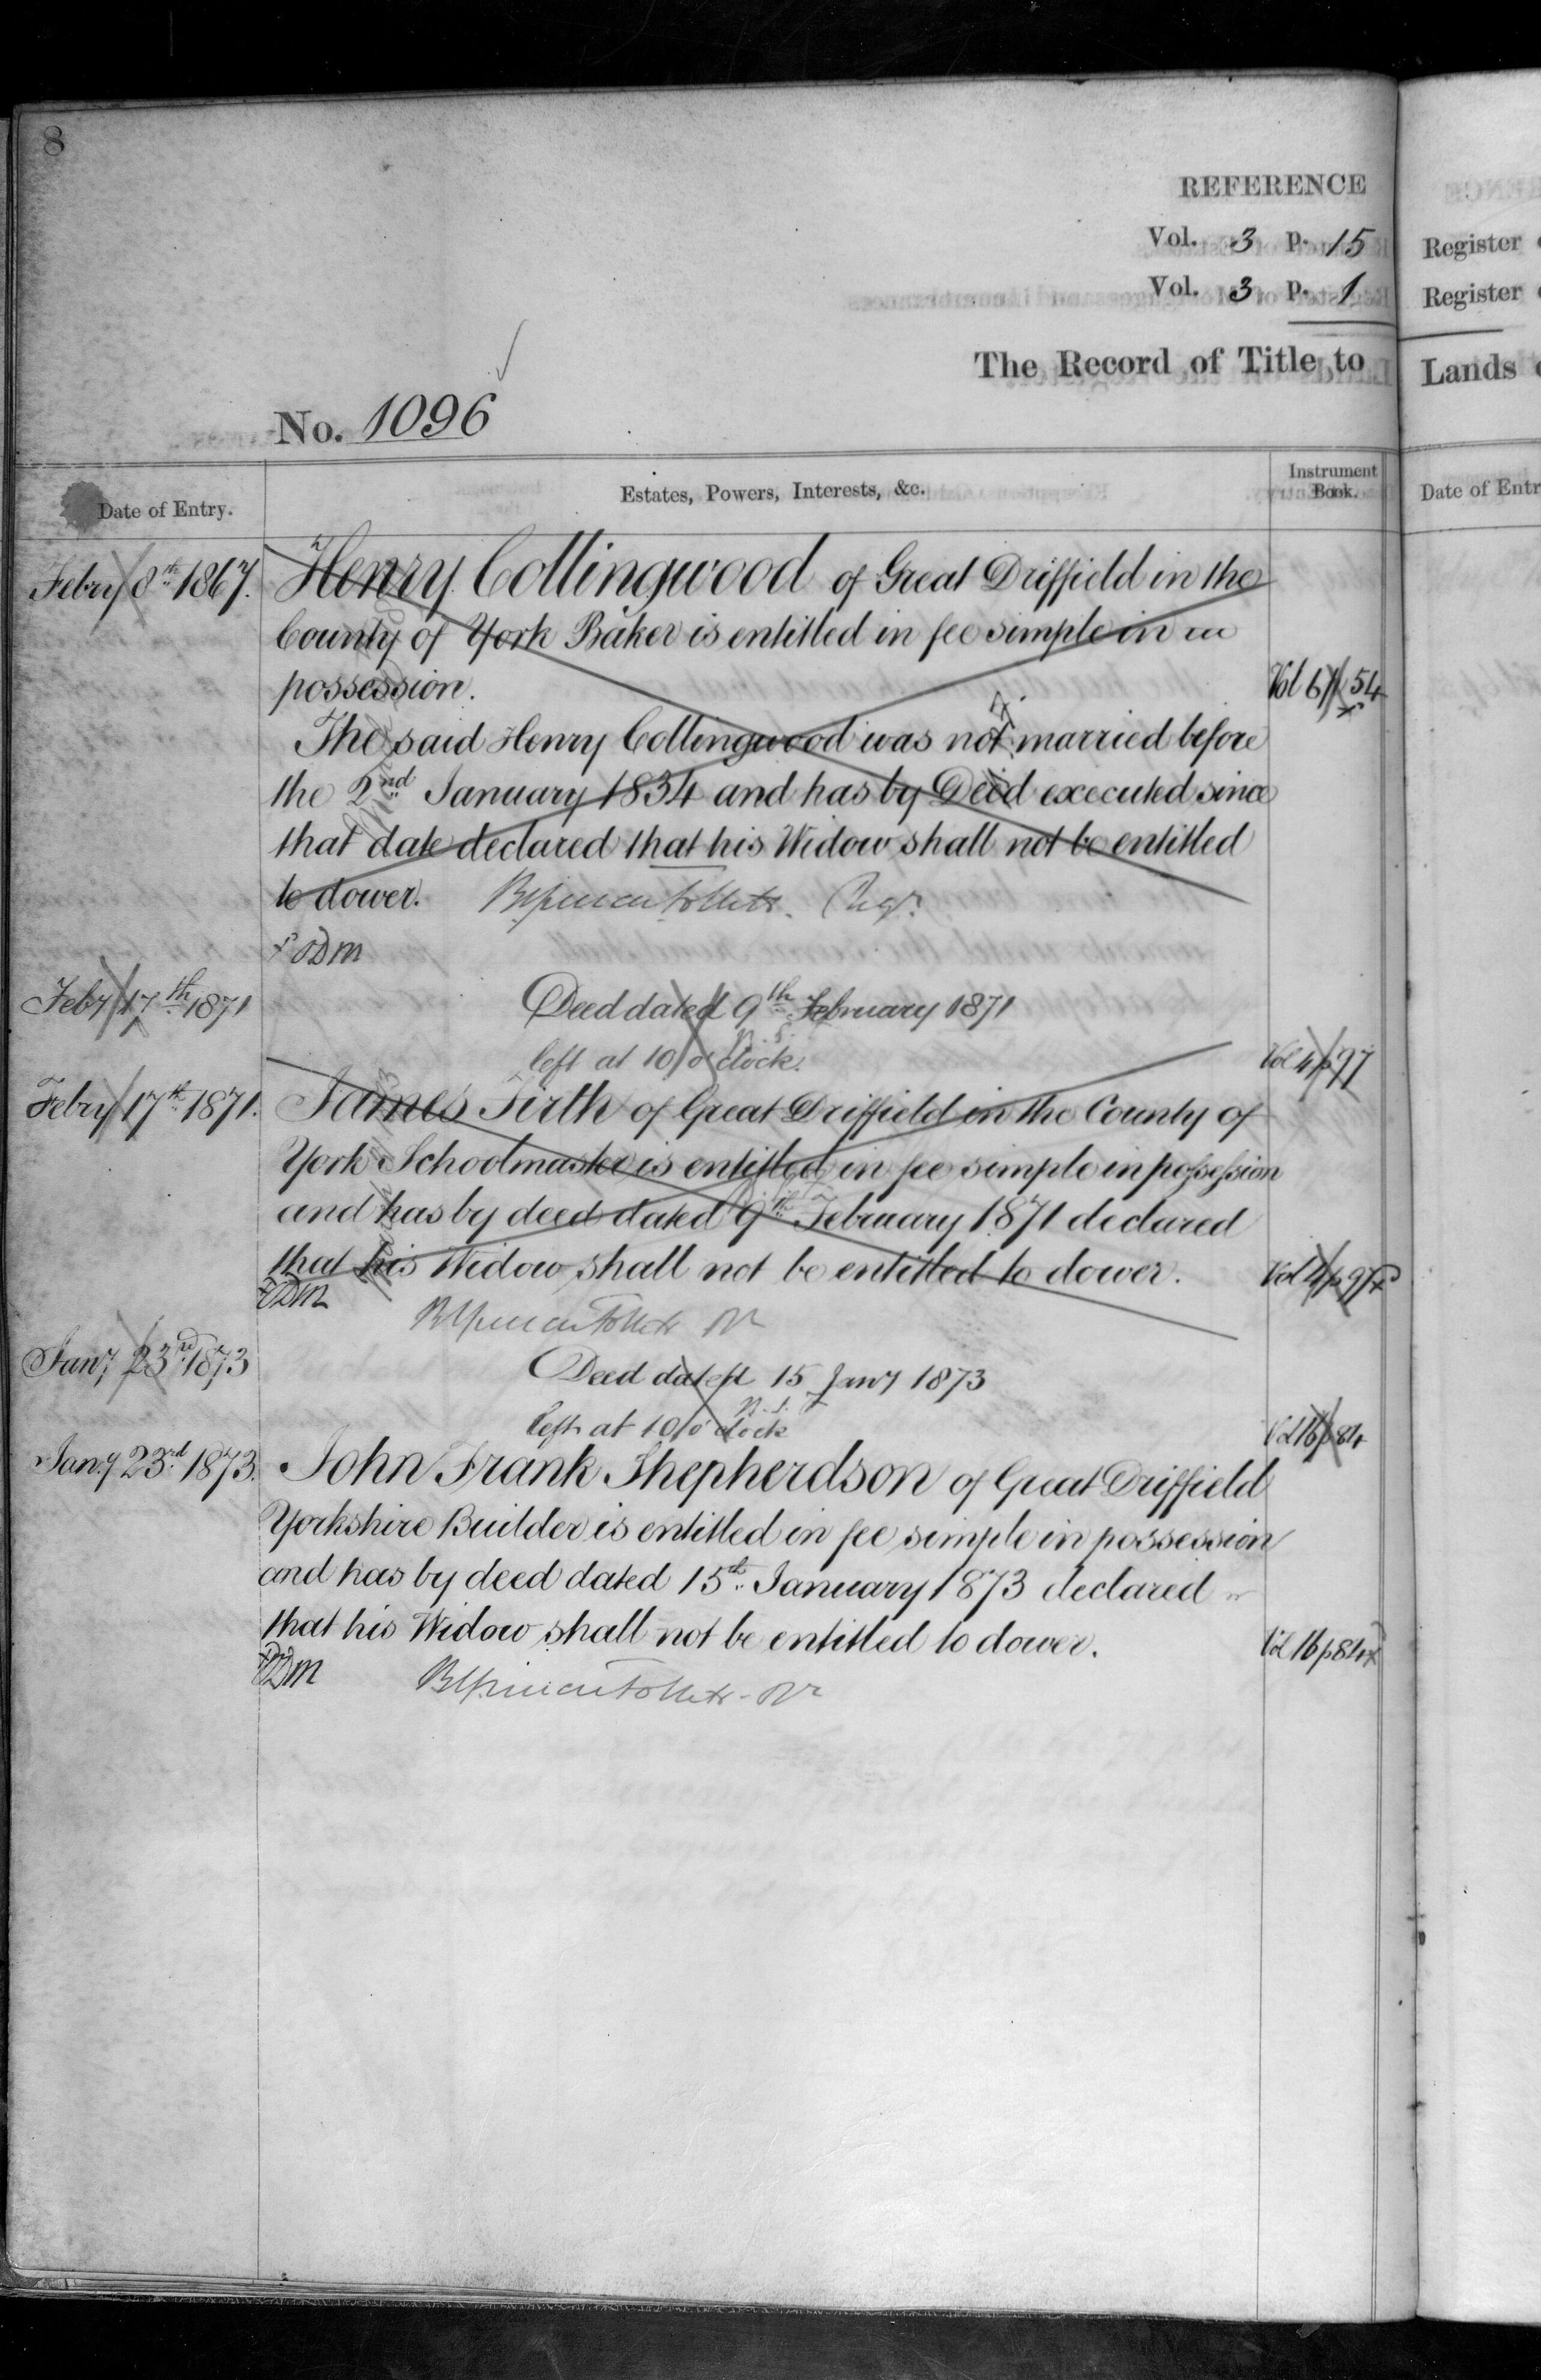 8
REFERENCE
Vol. 3 p. 15
Vol. 3 p. 1
The Record of Title to
No. 1096
Date of Entry.
Estates, Powers, Interests, &c.
Instrument Book.
Febry 8th 1867.
Henry Collingwood of Great Driffield in the
County of York Baker is entitled in fee simple in
possession.
Vol 6 p 54
The said Henry Collingwood was not married before
the 2nd January 1834 and has by Deed executed since
that date declared that his Widow shall not be entitled
to dower.
Feby 17th 1871
Deed dated 9th February 1871
left at 10 o'clock.
Vol 4 p 97
Febry 17th 1871.
James Firth of Great Driffield in the County of
York Schoolmaster is entitled in fee simple in possession
and has by deed dated 9th February 1871 declared
that his Widow shall not be entitled to dower.
Vol 4 p 97
Jany 23rd 1873
Deed dated 15 Jany 1873
left at 10 o'clock
Vol 16 p 84
Jany 23rd 1873.
John Frank Shepherdson of Great Driffield
Yorkshire Builder is entitled in fee simple in possession
and has by deed dated 15th January 1873 declared
that his Widow shall not be entitled to dower.
Vol 16 p 84
Register
Register
Lands
Date of Entr